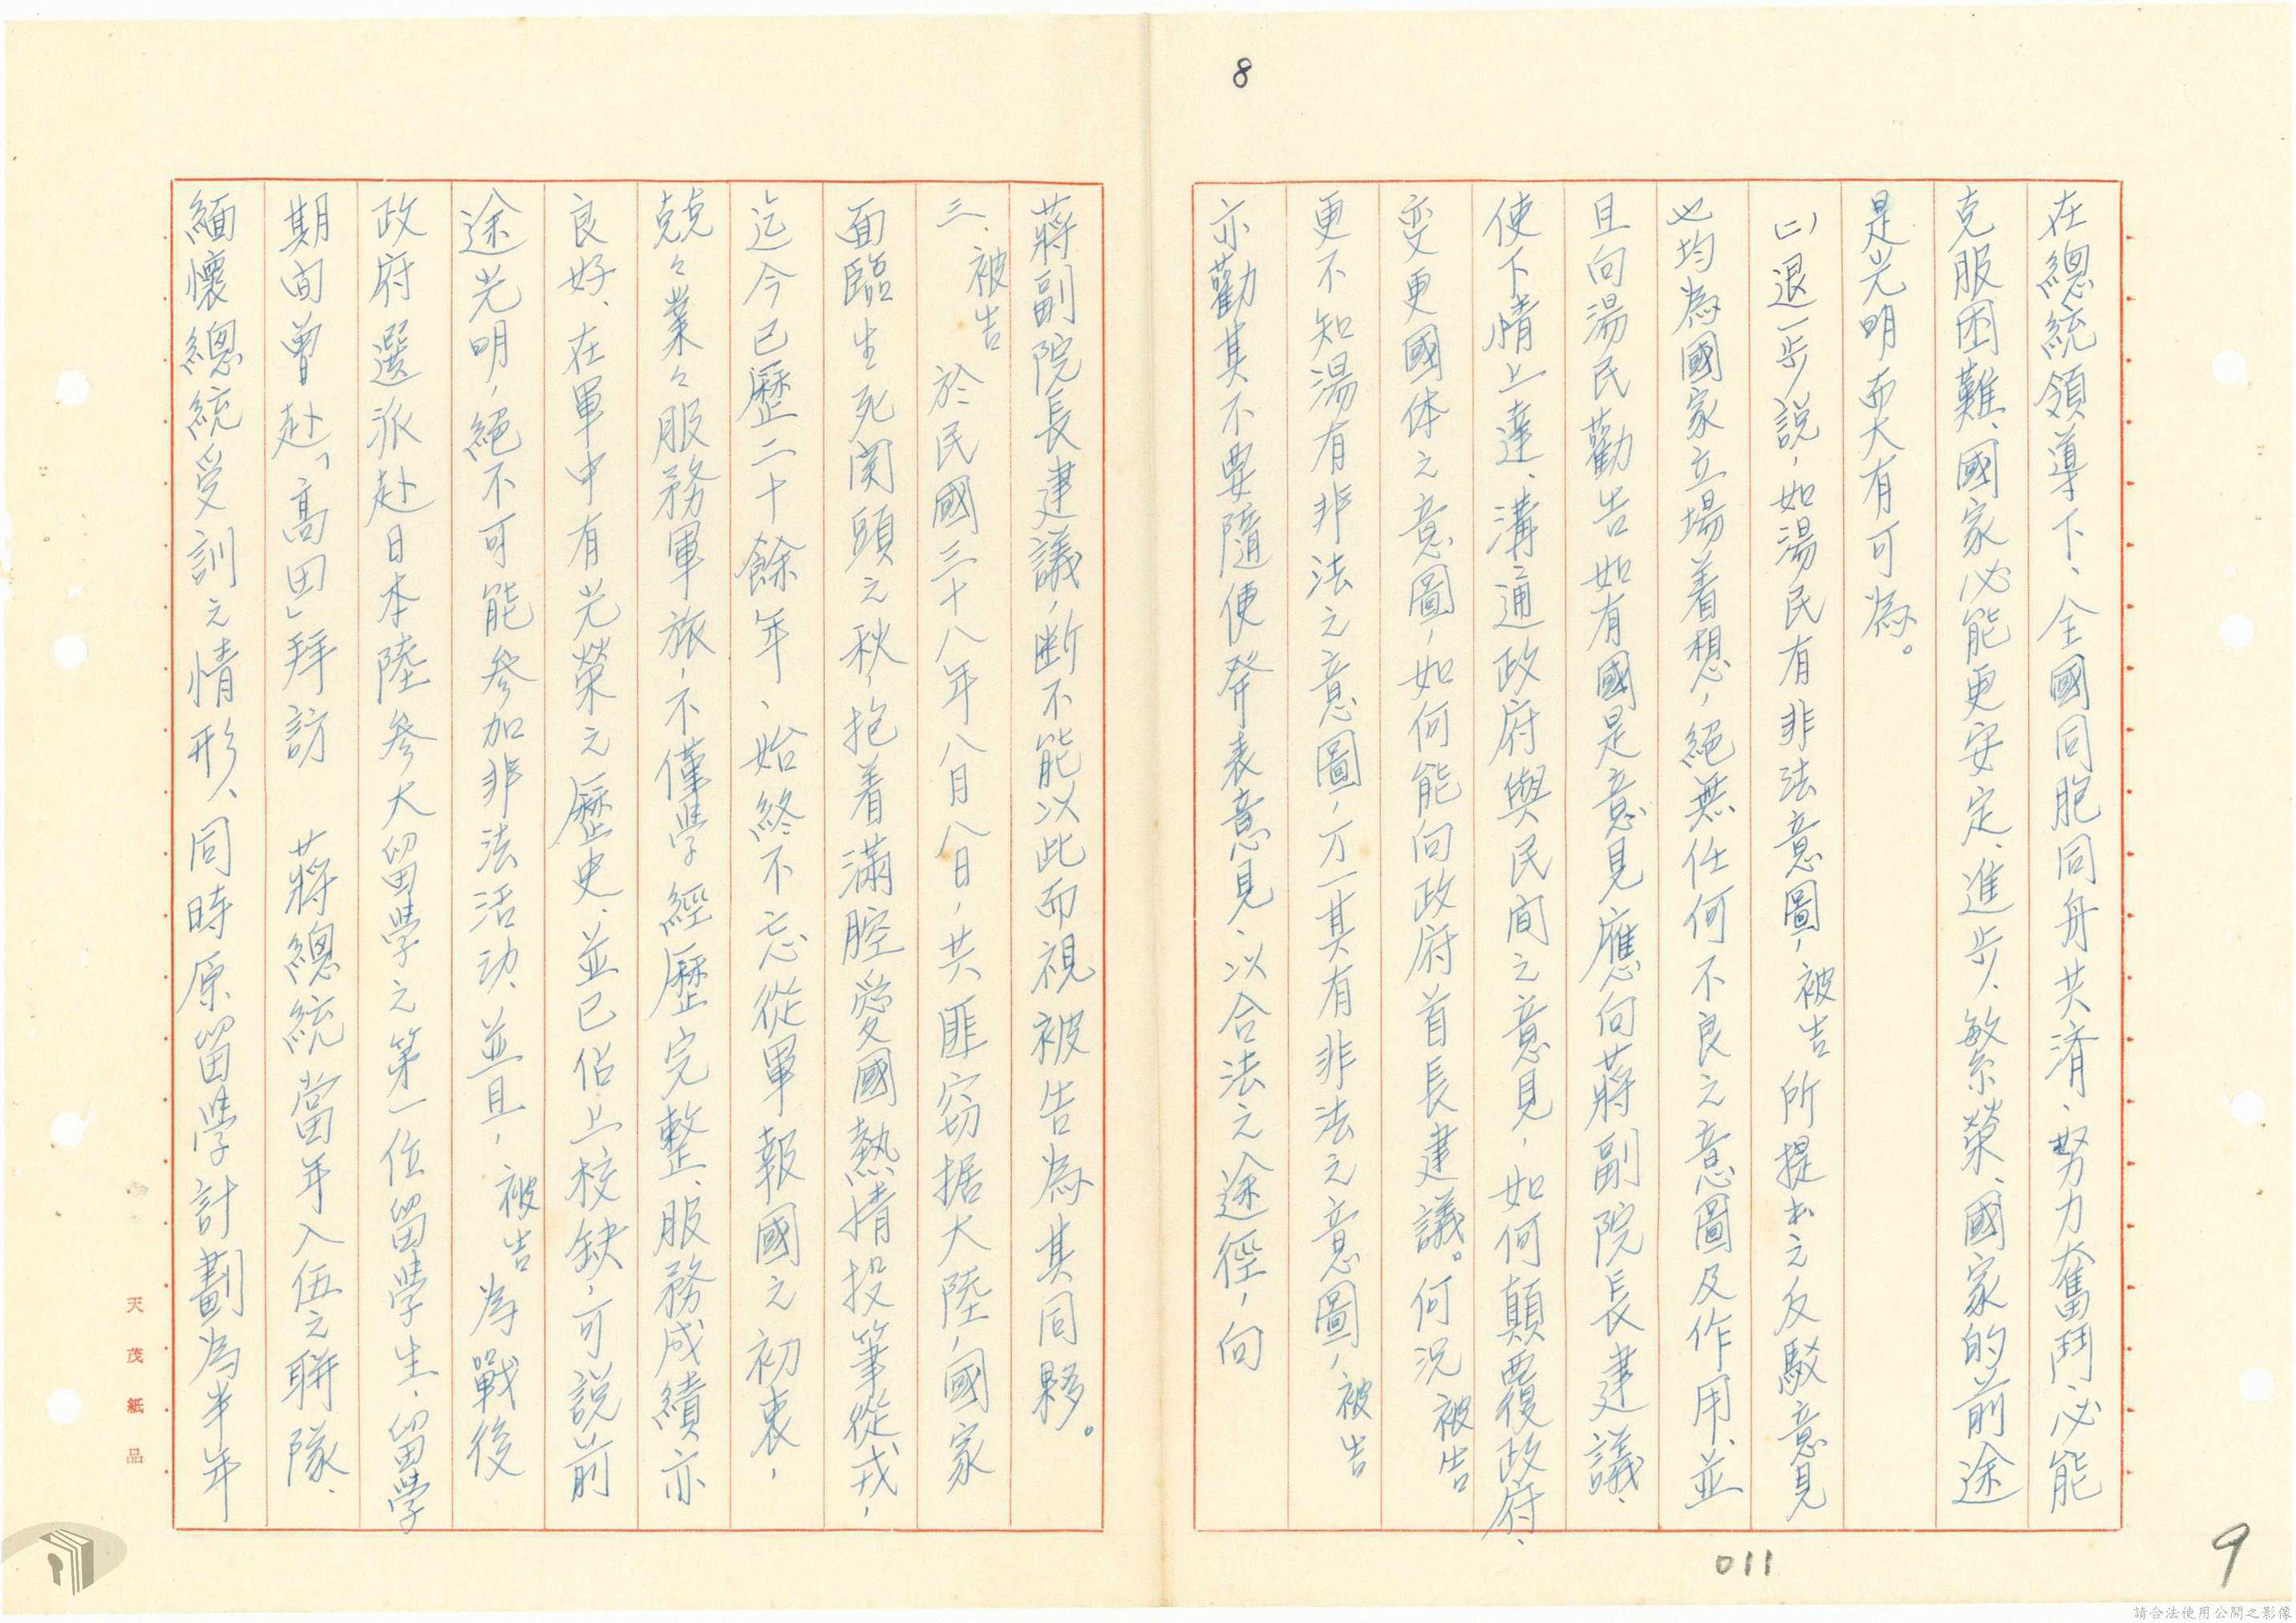 8
在總統領導下、全國同胞同舟共濟、努力奮鬥必能
克服困難、國家必能更安定、進步、繁榮、國家的前途
是光明而大有可為。
(二)退一步說，如湯民有非法意圖，被告所提出之反駁意見
也均為國家立場着想，絕無任何不良之意圖及作用、並
且向湯民勸告如有國是意見應向蔣副院長建議、
使下情上達、溝通政府與民間之意見，如何顛覆政府、
变更國体之意圖，如何能向政府首長建議。何況被告
更不知湯有非法之意圖，万一其有非法之意圖，被告
亦勸其不要隨便發表意見、以合法之途徑，向
蔣副院長建議，断不能以此而視被告為其同夥。
三、被告於民國三十八年八月八日，共匪窃据大陸，國家
面臨生死関頭之秋，抱着滿腔愛國熱情投筆從戎，
迄今已歷二十餘年、始終不忘從軍報國之初衷，
兢々業々服務軍旅，不僅學經歷完整、服務成績亦
良好、在軍中有光榮之歷史、並已佔上校缺，可說前
途光明，絕不可能參加非法活动、並且，被告為戰後
政府選派赴日本陸參大留學之第一位留學生、留學
期间曾赴「高田」拜訪　蔣總統當年入伍之联隊、
緬懷總統受訓之情形、同時原留學計劃為半年
天茂紙品
011
9
請合法使用公開之影像